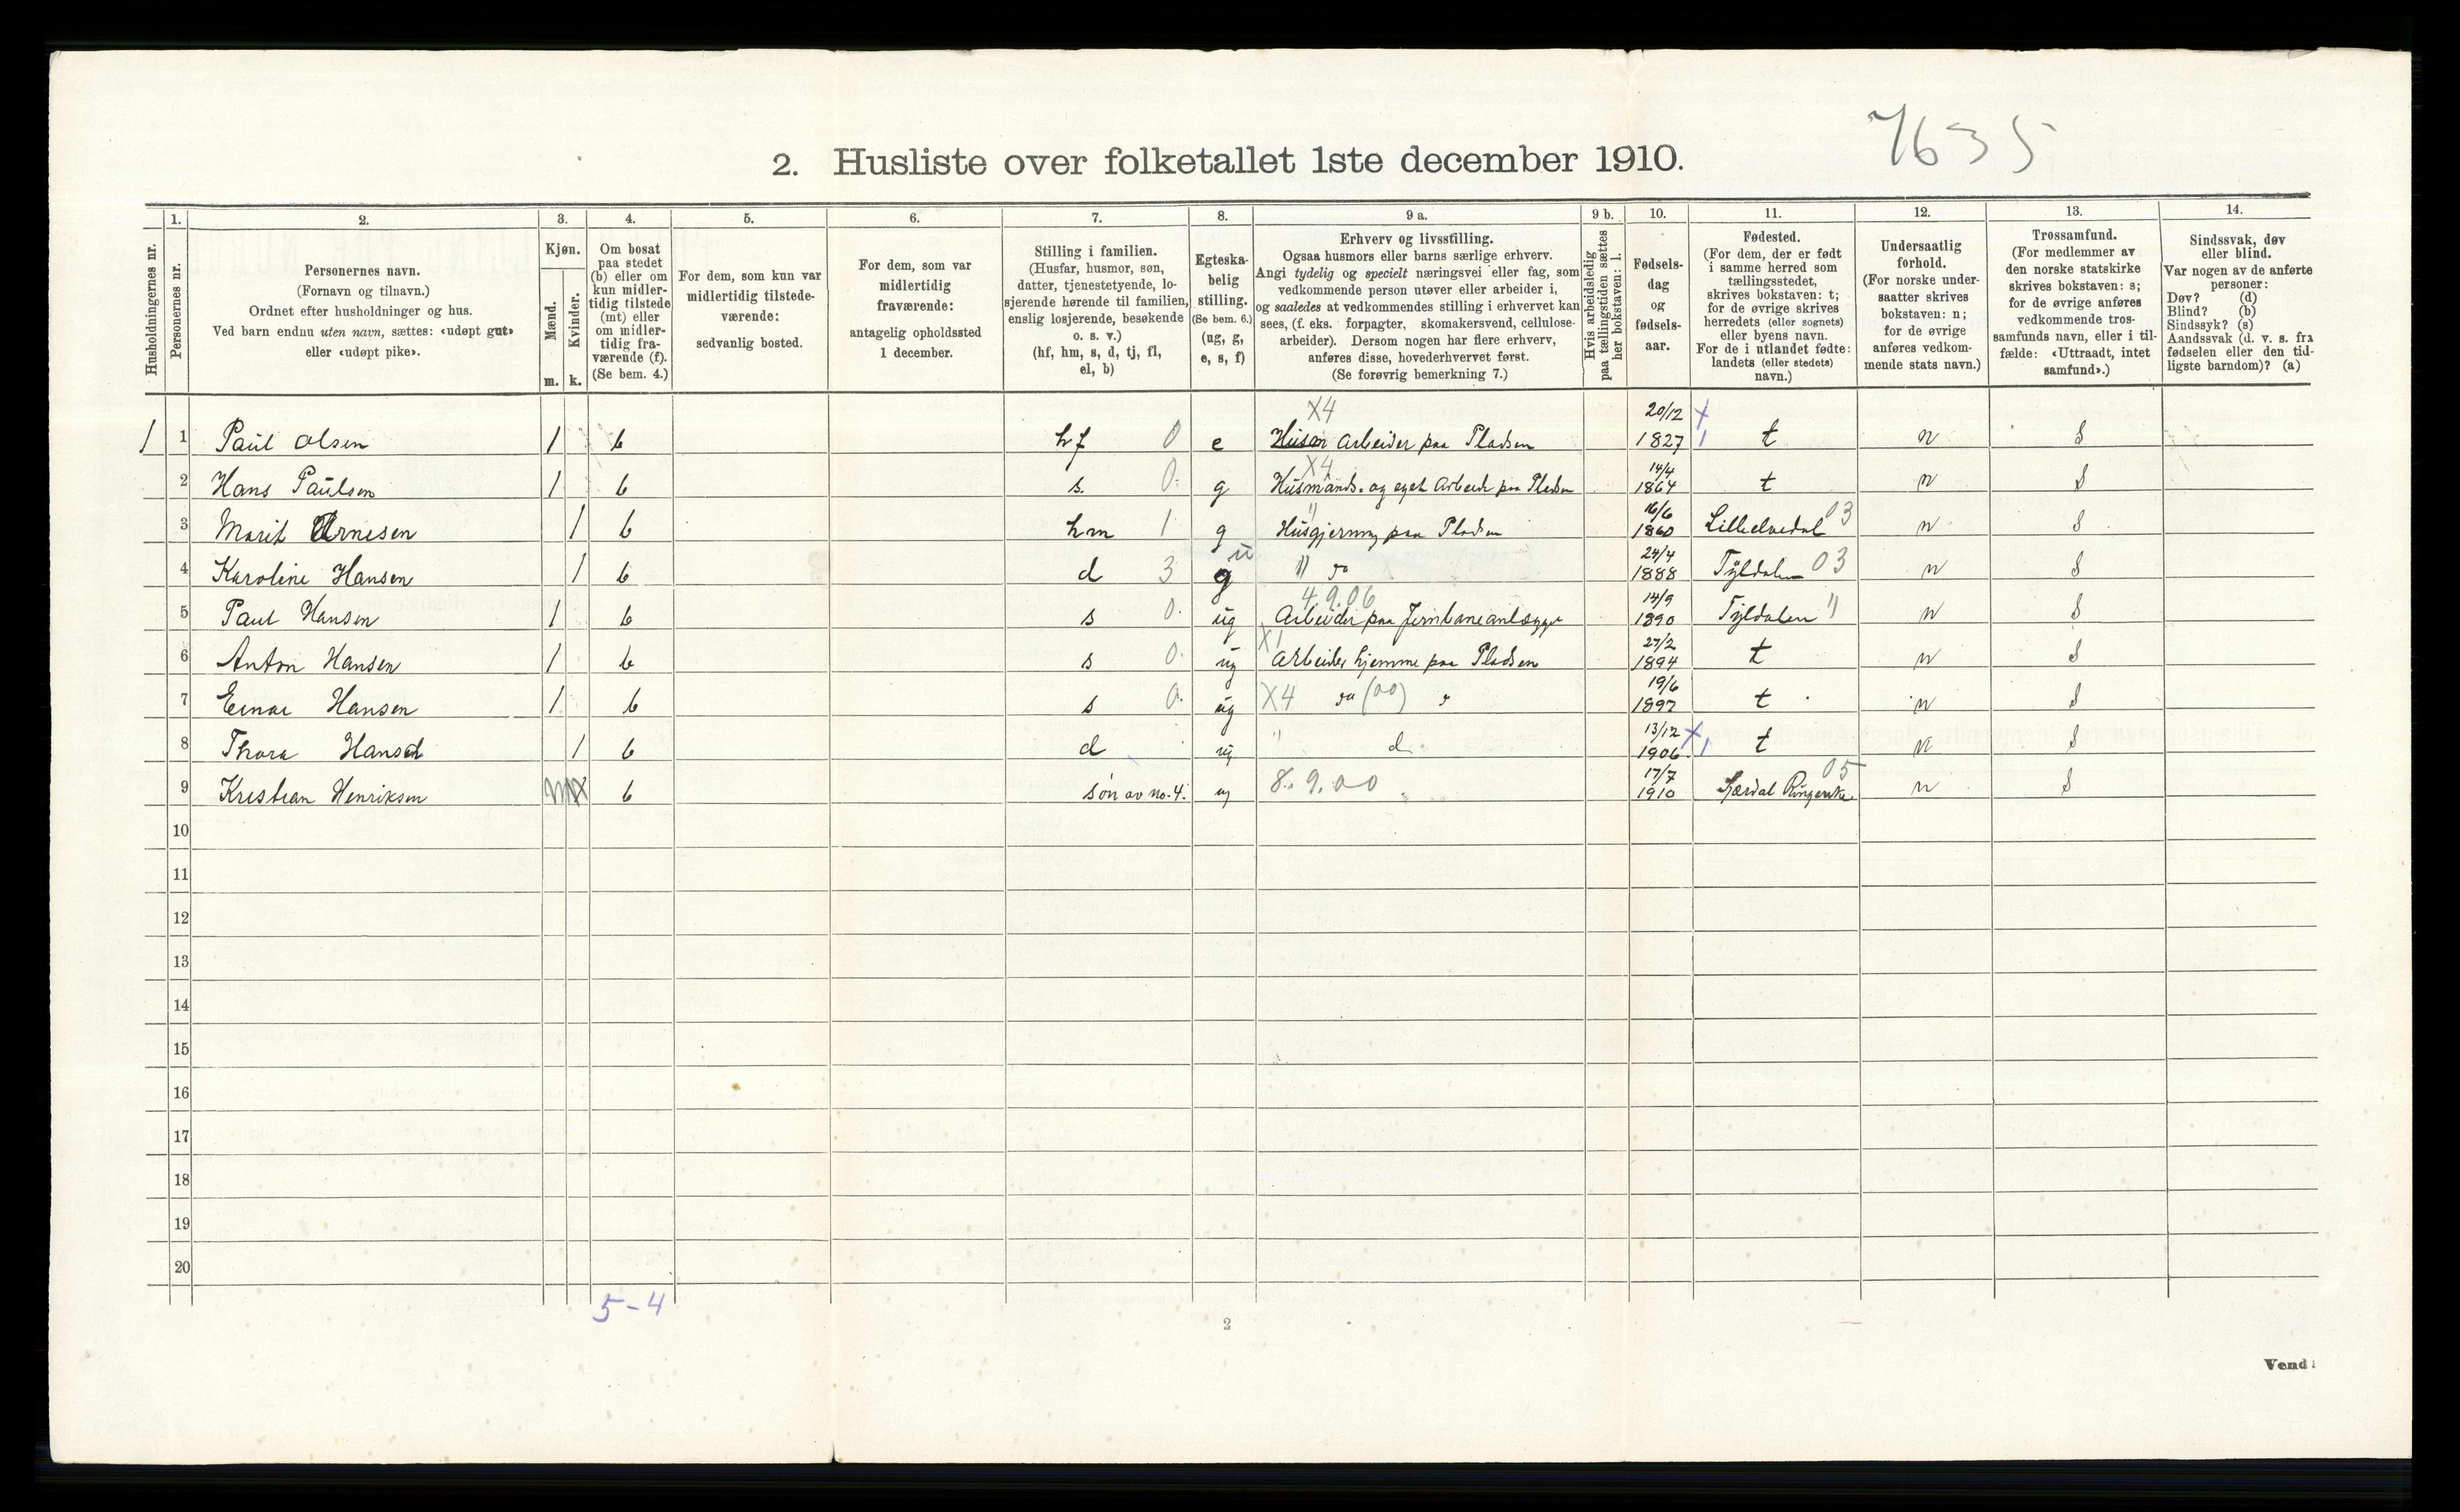 7635
2. Husliste over folketallet 1ste december 1910.
1. 2. 3. 4. 5. 6. 7. 8. 9 a. 9 b. 10. 11. 12. 13. 14.
Husholdningernes nr.
Personernes nr.
Personernes navn.
(Fornavn og tilnavn.)
Ordnet efter husholdninger og hus.
Ved barn endnu uten navn, sættes: «udøpt gut»
eller «udøpt pike».
Kjøn.
Mænd.
Kvinder.
m. k.
Om bosat
paa stedet
(b) eller om
kun midler-
tidig tilstede
(mt) eller
om midler-
tidig fra-
værende (f).
(Se bem. 4.)
For dem, som kun var
midlertidig tilstede-
værende:
sedvanlig bosted.
For dem, som var
midlertidig
fraværende:
antagelig opholdssted
1 december.
Stilling i familien.
(Husfar, husmor, søn,
datter, tjenestetyende, lo-
sjerende hørende til familien,
enslig losjerende, besøkende
o. s. v.)
(hf, hm, s, d, tj, fl,
el, b)
Egteska-
belig
stilling.
(Se bem. 6.)
(ug, g,
e, s, f)
Erhverv og livsstilling.
Ogsaa husmors eller barns særlige erhverv.
Angi tydelig og specielt næringsvei eller fag, som
vedkommende person utøver eller arbeider i,
og saaledes at vedkommendes stilling i erhvervet kan
sees, (f. eks. forpagter, skomakersvend, cellulose-
arbeider). Dersom nogen har flere erhverv,
anføres disse, hovederhvervet først.
(Se forøvrig bemerkning 7.)
Hvis arbeidsledig
paa tællingstiden sættes
her bokstaven: l.
Fødsels-
dag
og
fødsels-
aar.
Fødested.
(For dem, der er født
i samme herred som
tællingsstedet,
skrives bokstaven: t;
for de øvrige skrives
herredets (eller sognets)
eller byens navn.
For de i utlandet fødte:
landets (eller stedets)
navn.)
Undersaatlig
forhold.
(For norske under-
saatter skrives
bokstaven: n;
for de øvrige
anføres vedkom-
mende stats navn.)
Trossamfund.
(For medlemmer av
den norske statskirke
skrives bokstaven: s;
for de øvrige anføres
vedkommende tros-
samfunds navn, eller i til-
fælde: «Uttraadt, intet
samfund».)
Sindssvak, døv
eller blind.
Var nogen av de anførte
personer:
Døv? (d)
Blind? (b)
Sindssyk? (s)
Aandssvak (d. v. s. fra
fødselen eller den tid-
ligste barndom)? (a)
X4 20/12 x
1 1 Paul Olsen 1 b hf 0 e Arbeider paa Pladsen 1827 1 t n S
X4 14/4
2 Hans Paulsen 1 b s. 0. g Husmands. og eget Arbeide paa Pladsen 1864 t n S
" 16/6 03
3 Marit Arnesen 1 b hm 1 g Husgjerning paa Pladsen 1860 Lilleelvedal n S
u 24/4
4 Karoline Hansen 1 b d 3 g " do 1888 Tyldalen 03 n S
4.9.06 14/9
5 Paul Hansen 1 b s 0. ug Arbeider paa Jernbaneanlægget 1890 Tyldalen " n S
X1 27/2
6 Anton Hansen 1 b s 0. ug Arbeider hjemme paa Pladsen 1894 t n S
19/6
7 Einar Hansen 1 b s 0. ug X4 do (00) 1897 t n S
13/12 x
8 Thora Hansen 1 b d ug " d 1906 1 t n S
17/7 05
9 Kristian Henriksen b søn av no. 4. ug 8.9.00 1910 Ringerike n S
10
11
12
13
14
15
16
17
18
19
20
5-4
2
Vend!